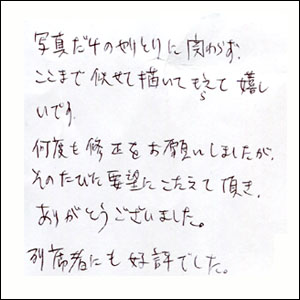 写真だけのやりとりに関わらず、
ここまで似せて描いてもらえて嬉し
いです。
何度も修正をお願いしましたが、
そのたびに要望にこたえて頂き、
ありがとうございました。
列席者にも好評でした。